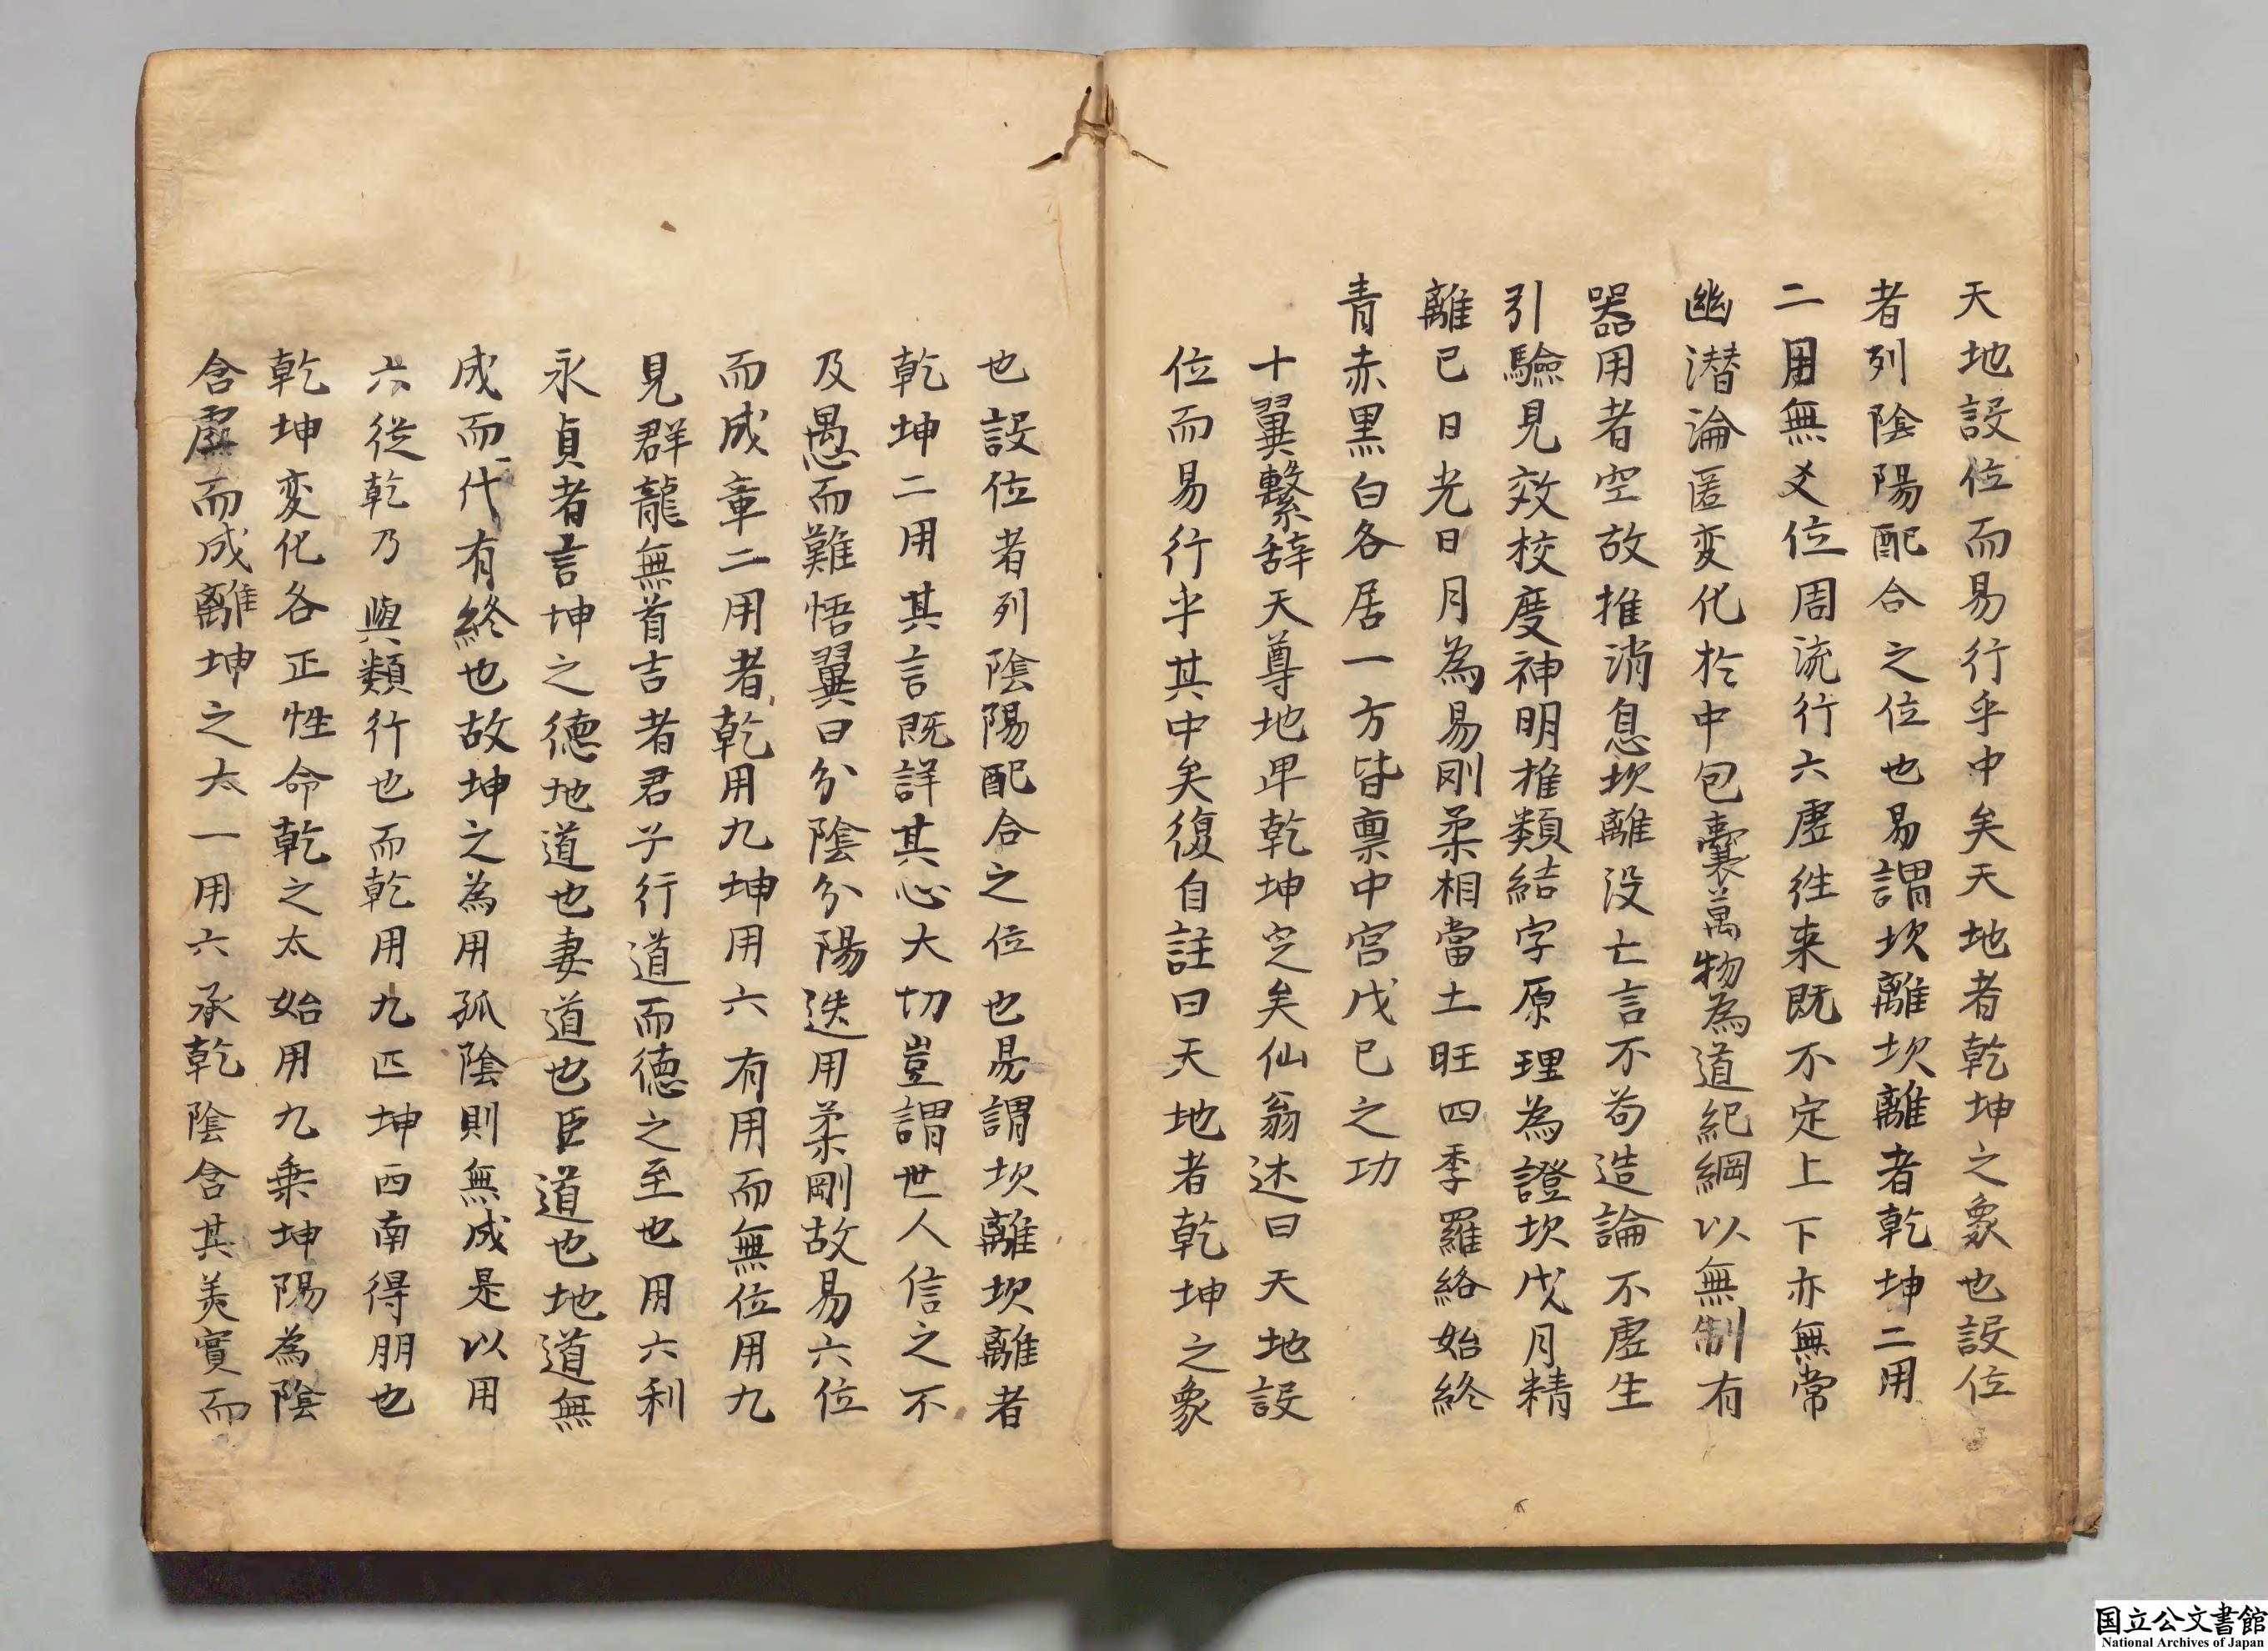 天地設位而易行乎中矣天地者乾坤之象也設位
者列陰陽配合之位也易謂坎離坎離者乾坤二用
二用無爻位周流行六虛徃来既不定上下亦無常
幽潜淪匿変化於中包囊萬物為道紀綱以無制有
器用者空故推消息坎離没亡言不苟造論不虛生
引驗見效校度神明推類結字原理為證坎戊月精
離已日光日月為易剛柔相當土旺四季羅絡始終
青赤黒白各居一方皆禀中宮戊已之功
十翼繋辞天尊地卑乾坤定矣仙翁述曰天地設
位而易行乎其中矣復自註曰天地者乾坤之象
也設位者列陰陽配合之位也易謂坎離坎離者
乾坤二用其言既詳其心大切豈謂世人信之不
及愚而難悟翼曰分陰分陽迭用柔剛故易六位
而成章二用者乾用九坤用六有用而無位用九
見群龍無首吉者君子行道而德之至也用六利
永貞者言坤之德地道也妻道也臣道也地道無
成而代有終也故坤之為用孤陰則無成是以用
六従乾乃與類行也而乾用九匹坤西南得朋也
乾坤変化各正性命乾之太始用九乗坤陽為陰
含而成離坤之太一用六承乾陰含其美實而
国立公文書館
National Archives of Japan